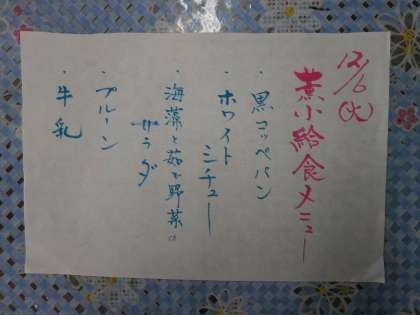 12/6(火)
葉小給食メニュー
・黒コッペパン
・ホワイト
シチュー
・海藻と茹で野菜の
サラダ
・プルーン
・牛乳